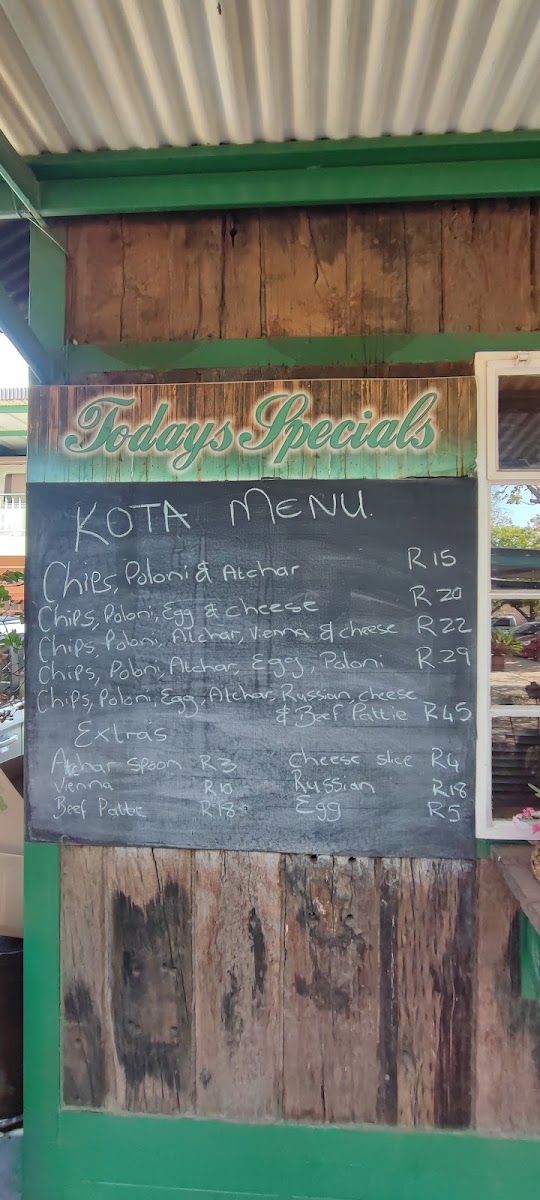 Todays Specials
KOTA MENU.
Chips, Poloni & Atchar R15
Chips, Poloni, Egg & cheese R20
Chips, Poloni, Atchar, Vienna & cheese R22
Chips, Poloni, Atchar, Egg, Poloni R29
Chips, Poloni, Egg, Atchar, Russian, cheese
& Beef Pattie R45
Extras
Atchar spoon R3 cheese slice R4
Vienna R10 Russian R18
Beef Pattie R18 Egg R5